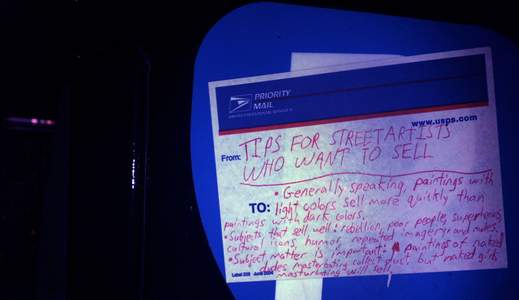 PRIORITY
MAIL
UNITED STATES POSTAL SERVICE
www.usps.com
From: TIPS FOR STREET ARTISTS
WHO WANT TO SELL
TO: • Generally speaking, paintings with
light colors sell more quickly than
paintings with dark colors.
• Subjects that sell well: rebellion, poor people, superheros,
cultural icons, humor, repeated imagery and nudes.
• Subject matter is important: A paintings of naked
dudes masterbating collect dust but naked girls
masturbating will sell.
Label 228